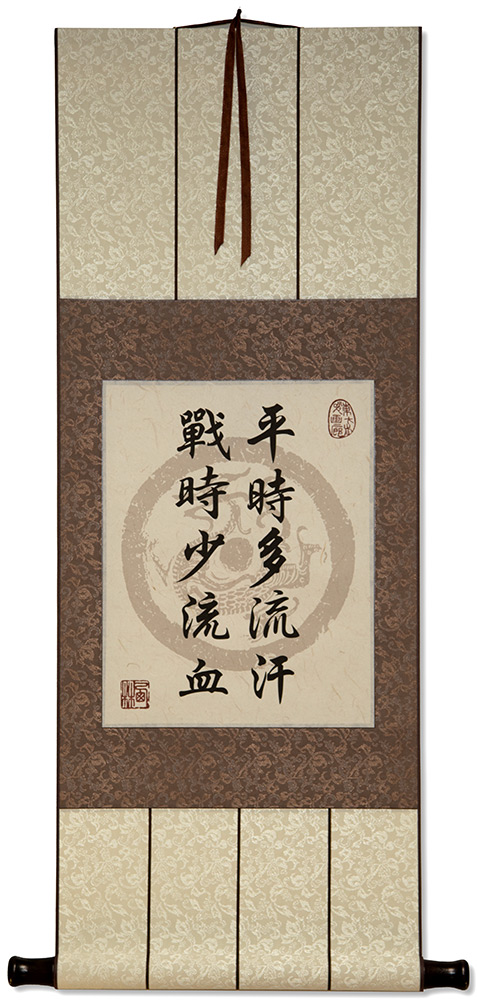 平時多流汗
戰時少流血